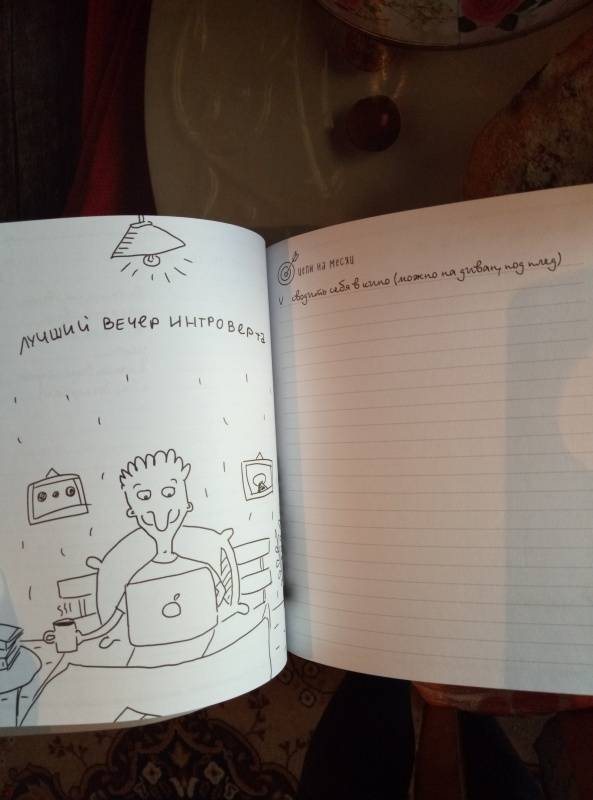 ЛУЧШИЙ ВЕЧЕР ИНТРОВЕРТА
ЦЕЛИ НА МЕСЯЦ
v сводить себя в кино (можно на диван, под плед)